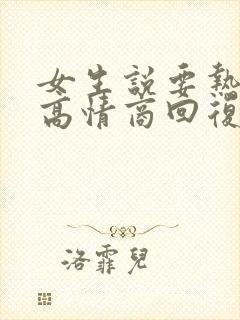 女生說要熱
高情商回復
洛霏兒